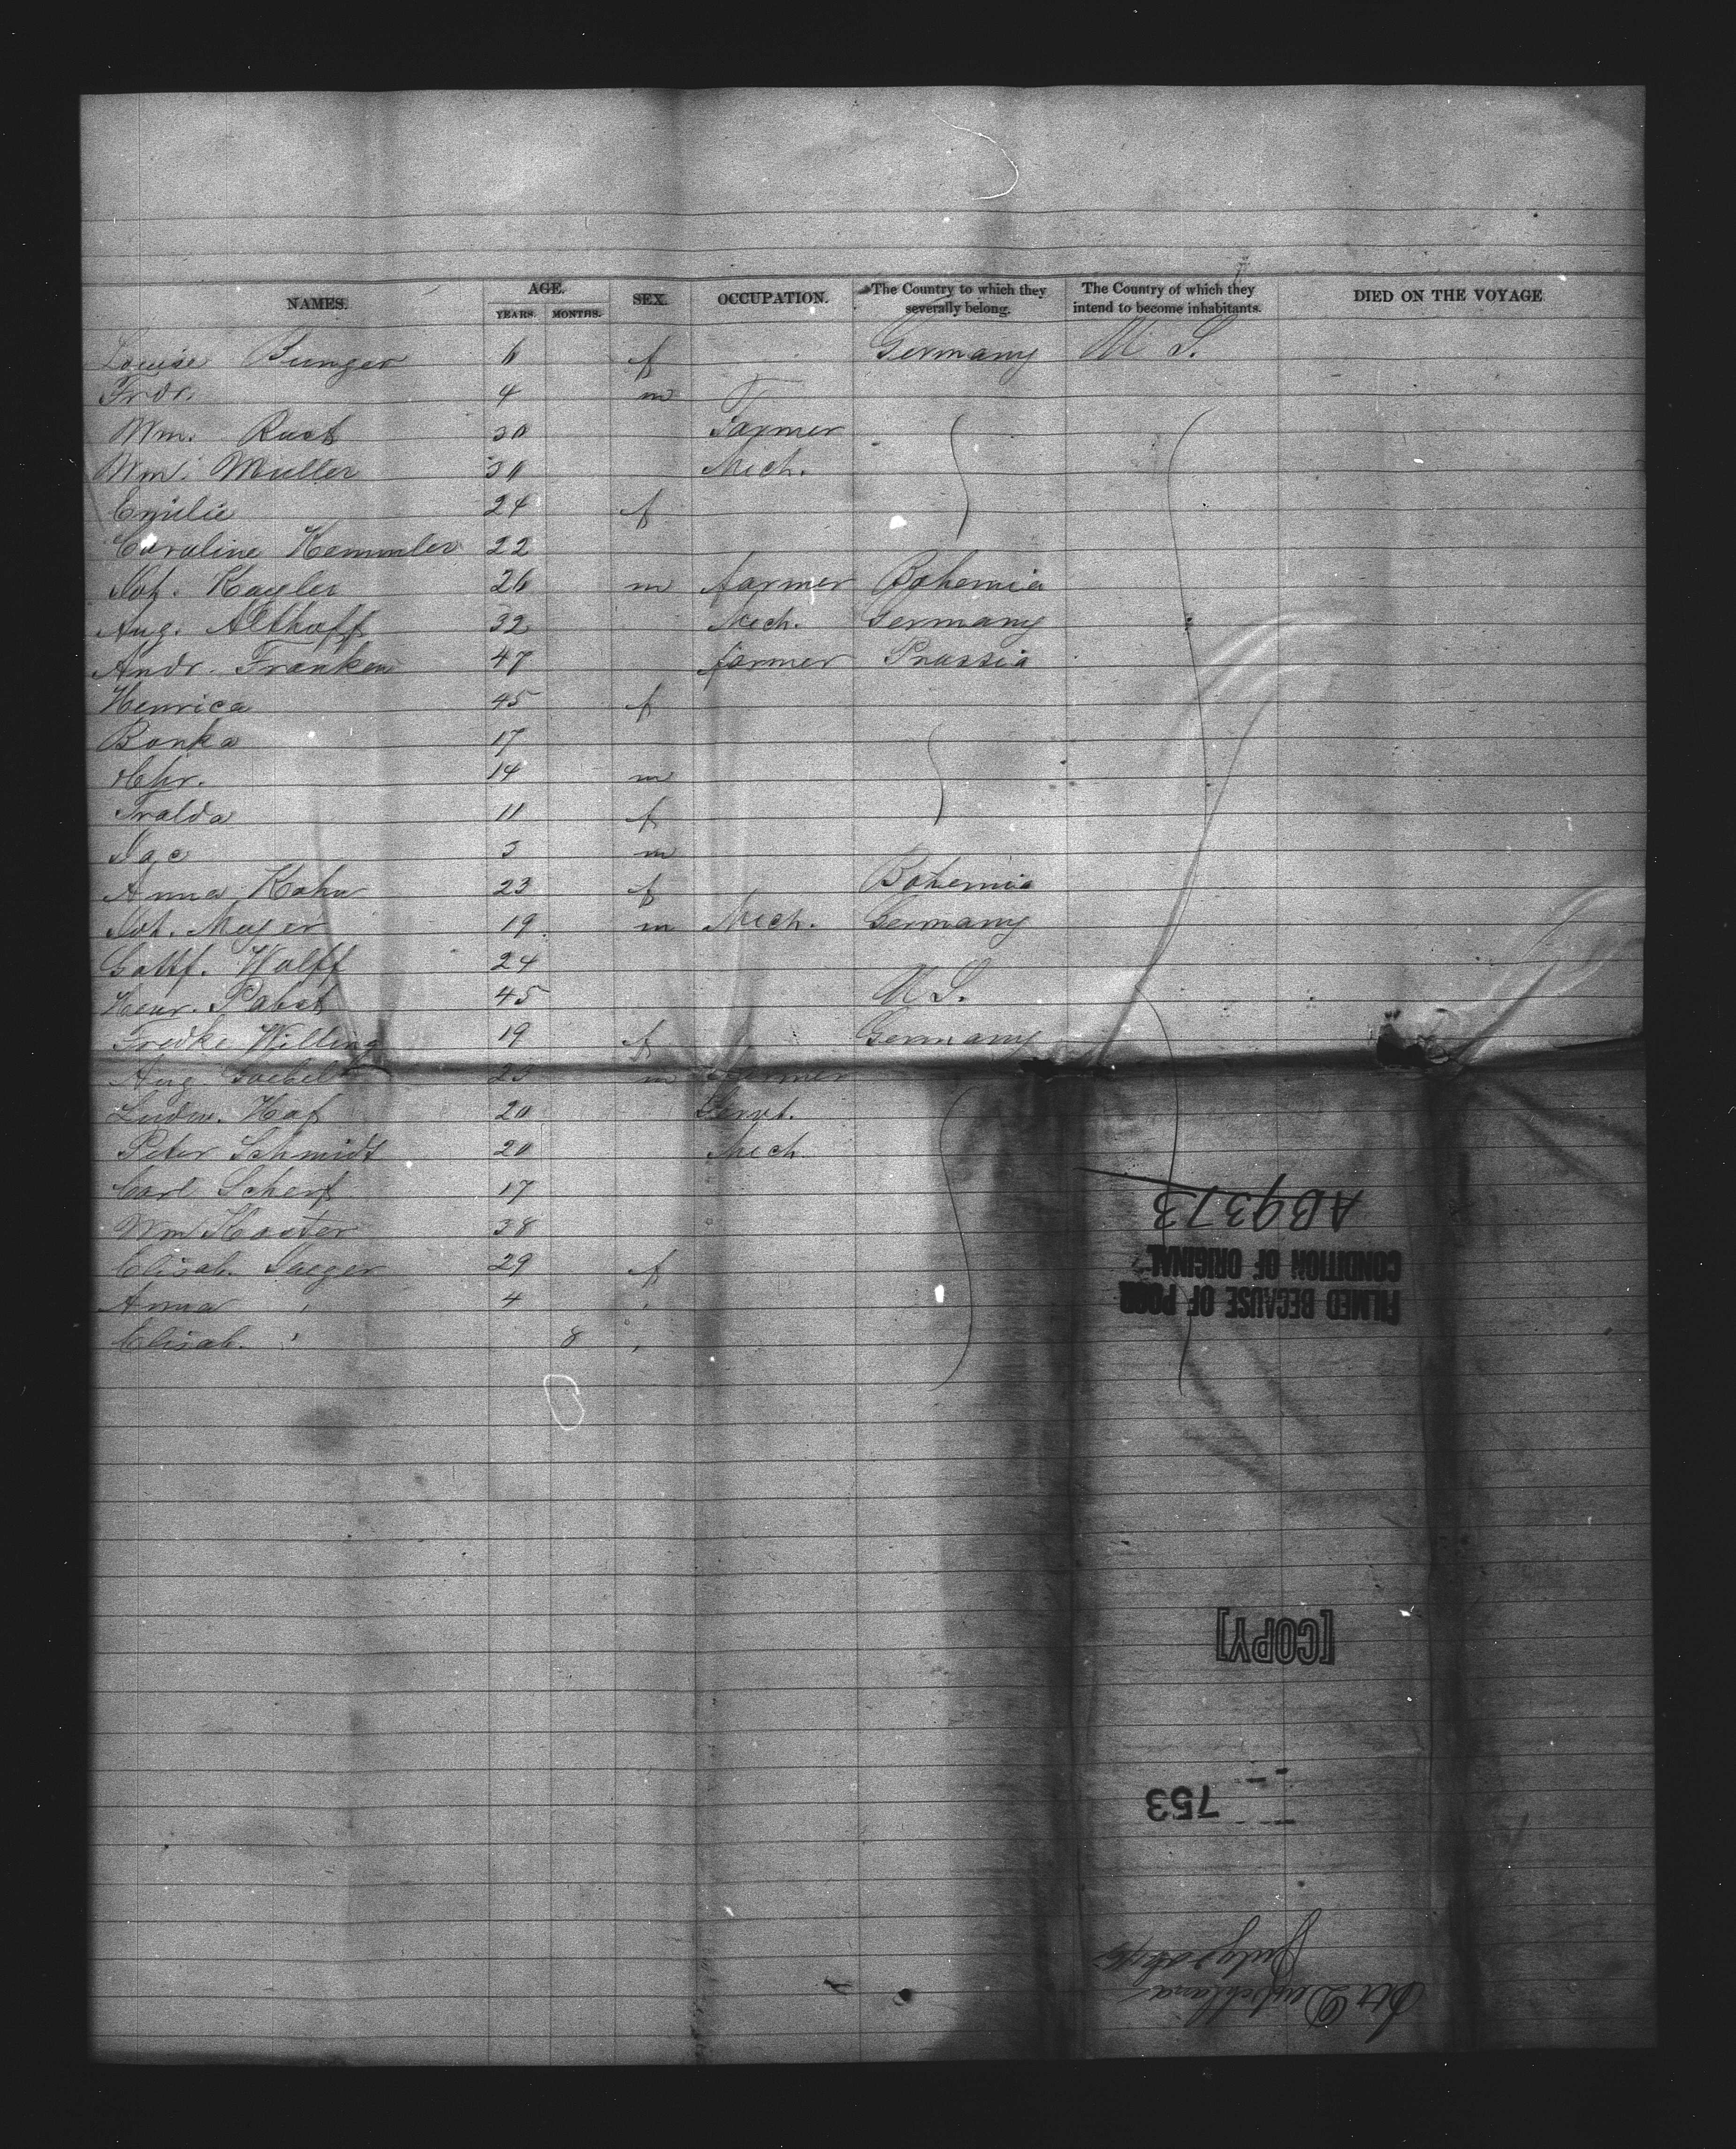 NAMES. AGE. YEARS. MONTHS. SEX. OCCUPATION. The Country to which they severally belong. The Country of which they intend to become inhabitants. DIED ON THE VOYAGE
Louise Bunger 6 f Germany U S.
Frdr. 4 m
Wm. Rust 30 Farmer
Wm. Muller 30 Mech.
Emilie 24 f
Caroline Kemmler 22
Joh. Kayler 26 m farmer Bohemia
Aug. Althoff 32 Mech. Germany
Andr. Franken 47 farmer Prussia
Henrica 45 f
Bonka 17
Chr. 14 m
Tralda 11 f
3 m
Anna Kahn 23 f Bohemia
Joh. Mayer 19 m Mech. Germany
Gottf. Wolff 24
Henr. Pabst 45 U S.
Fredke Willing 19 f Germany
Aug. Goebel 25 m Farmer
Ludw. Hof 20 Servt.
Peter Schmidt 20 Mech
Carl Scherf 17
Wm Koster 38
Elisab. Jaeger 29 f
Anna " 4 "
Elisab. " 8 "
AB9373
FILMED BECAUSE OF POOR
CONDITION OF ORIGINAL
[COPY]
753
Str Deutschland
July